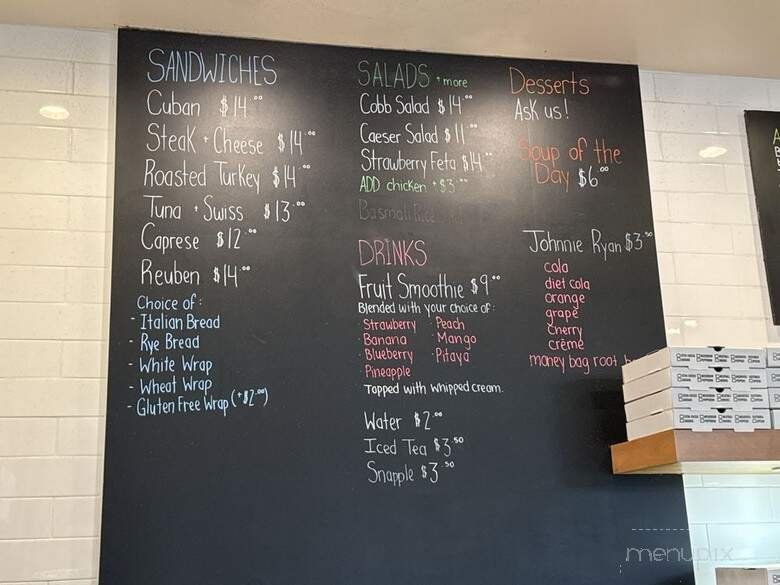 SANDWICHES
Cuban $14.00
Steak + Cheese $14.00
Roasted Turkey $14.00
Tuna + Swiss $13.00
Caprese $12.00
Reuben $14.00
Choice of:
- Italian Bread
- Rye Bread
- White Wrap
- Wheat Wrap
- Gluten Free Wrap (+$2.00)
SALADS + more
Cobb Salad $14.00
Caeser Salad $11.00
Strawberry Feta $14.00
ADD chicken +$3.00
Basmati Rice
DRINKS
Fruit Smoothie $9.00
Blended with your choice of:
· Strawberry · Peach
· Banana · Mango
· Blueberry · Pitaya
· Pineapple
Topped with whipped cream.
Water $2.00
Iced Tea $3.50
Snapple $3.50
Desserts
Ask us!
Soup of the
Day $6.00
Johnnie Ryan $3.50
cola
diet cola
orange
grape
cherry
créme
money bag root
menupix